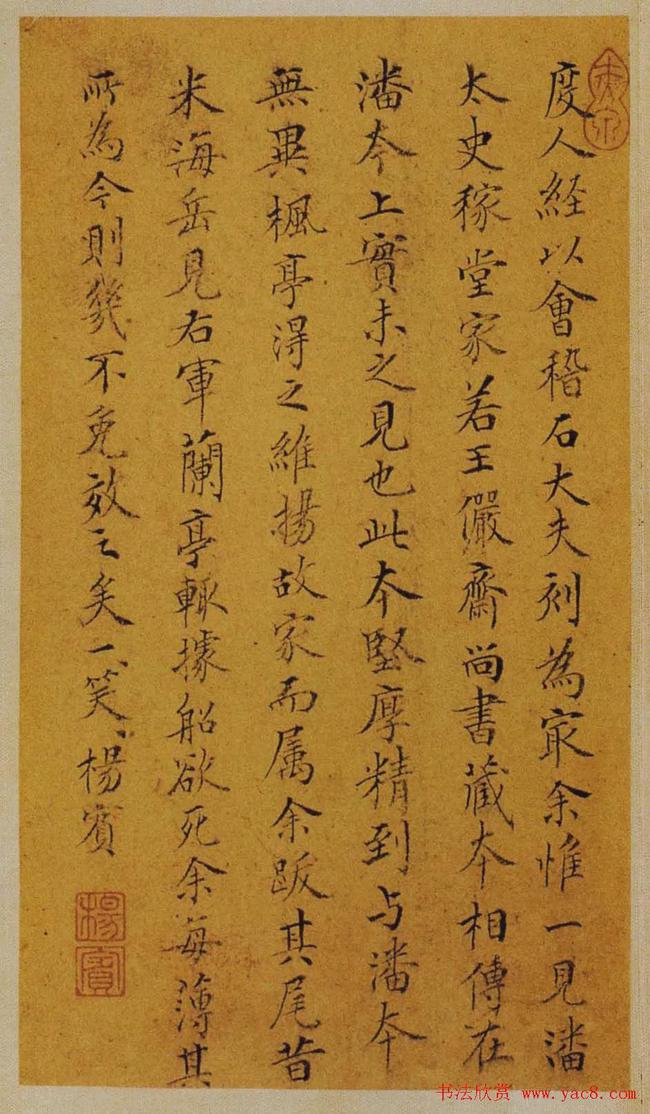 度人経以會稽石大夫刻為冣余惟一見潘
太史稼堂家若王儼齋尚書藏夲相傳在
潘夲上實未之見也此夲堅厚精到与潘夲
無異楓亭得之維揚故家而属余跋其尾昔
米海岳見右軍蘭亭輙據船欲死余每薄其
所為今則幾不免效之矣一笑楊賓
楊賓
书法欣赏 www.yac8.com